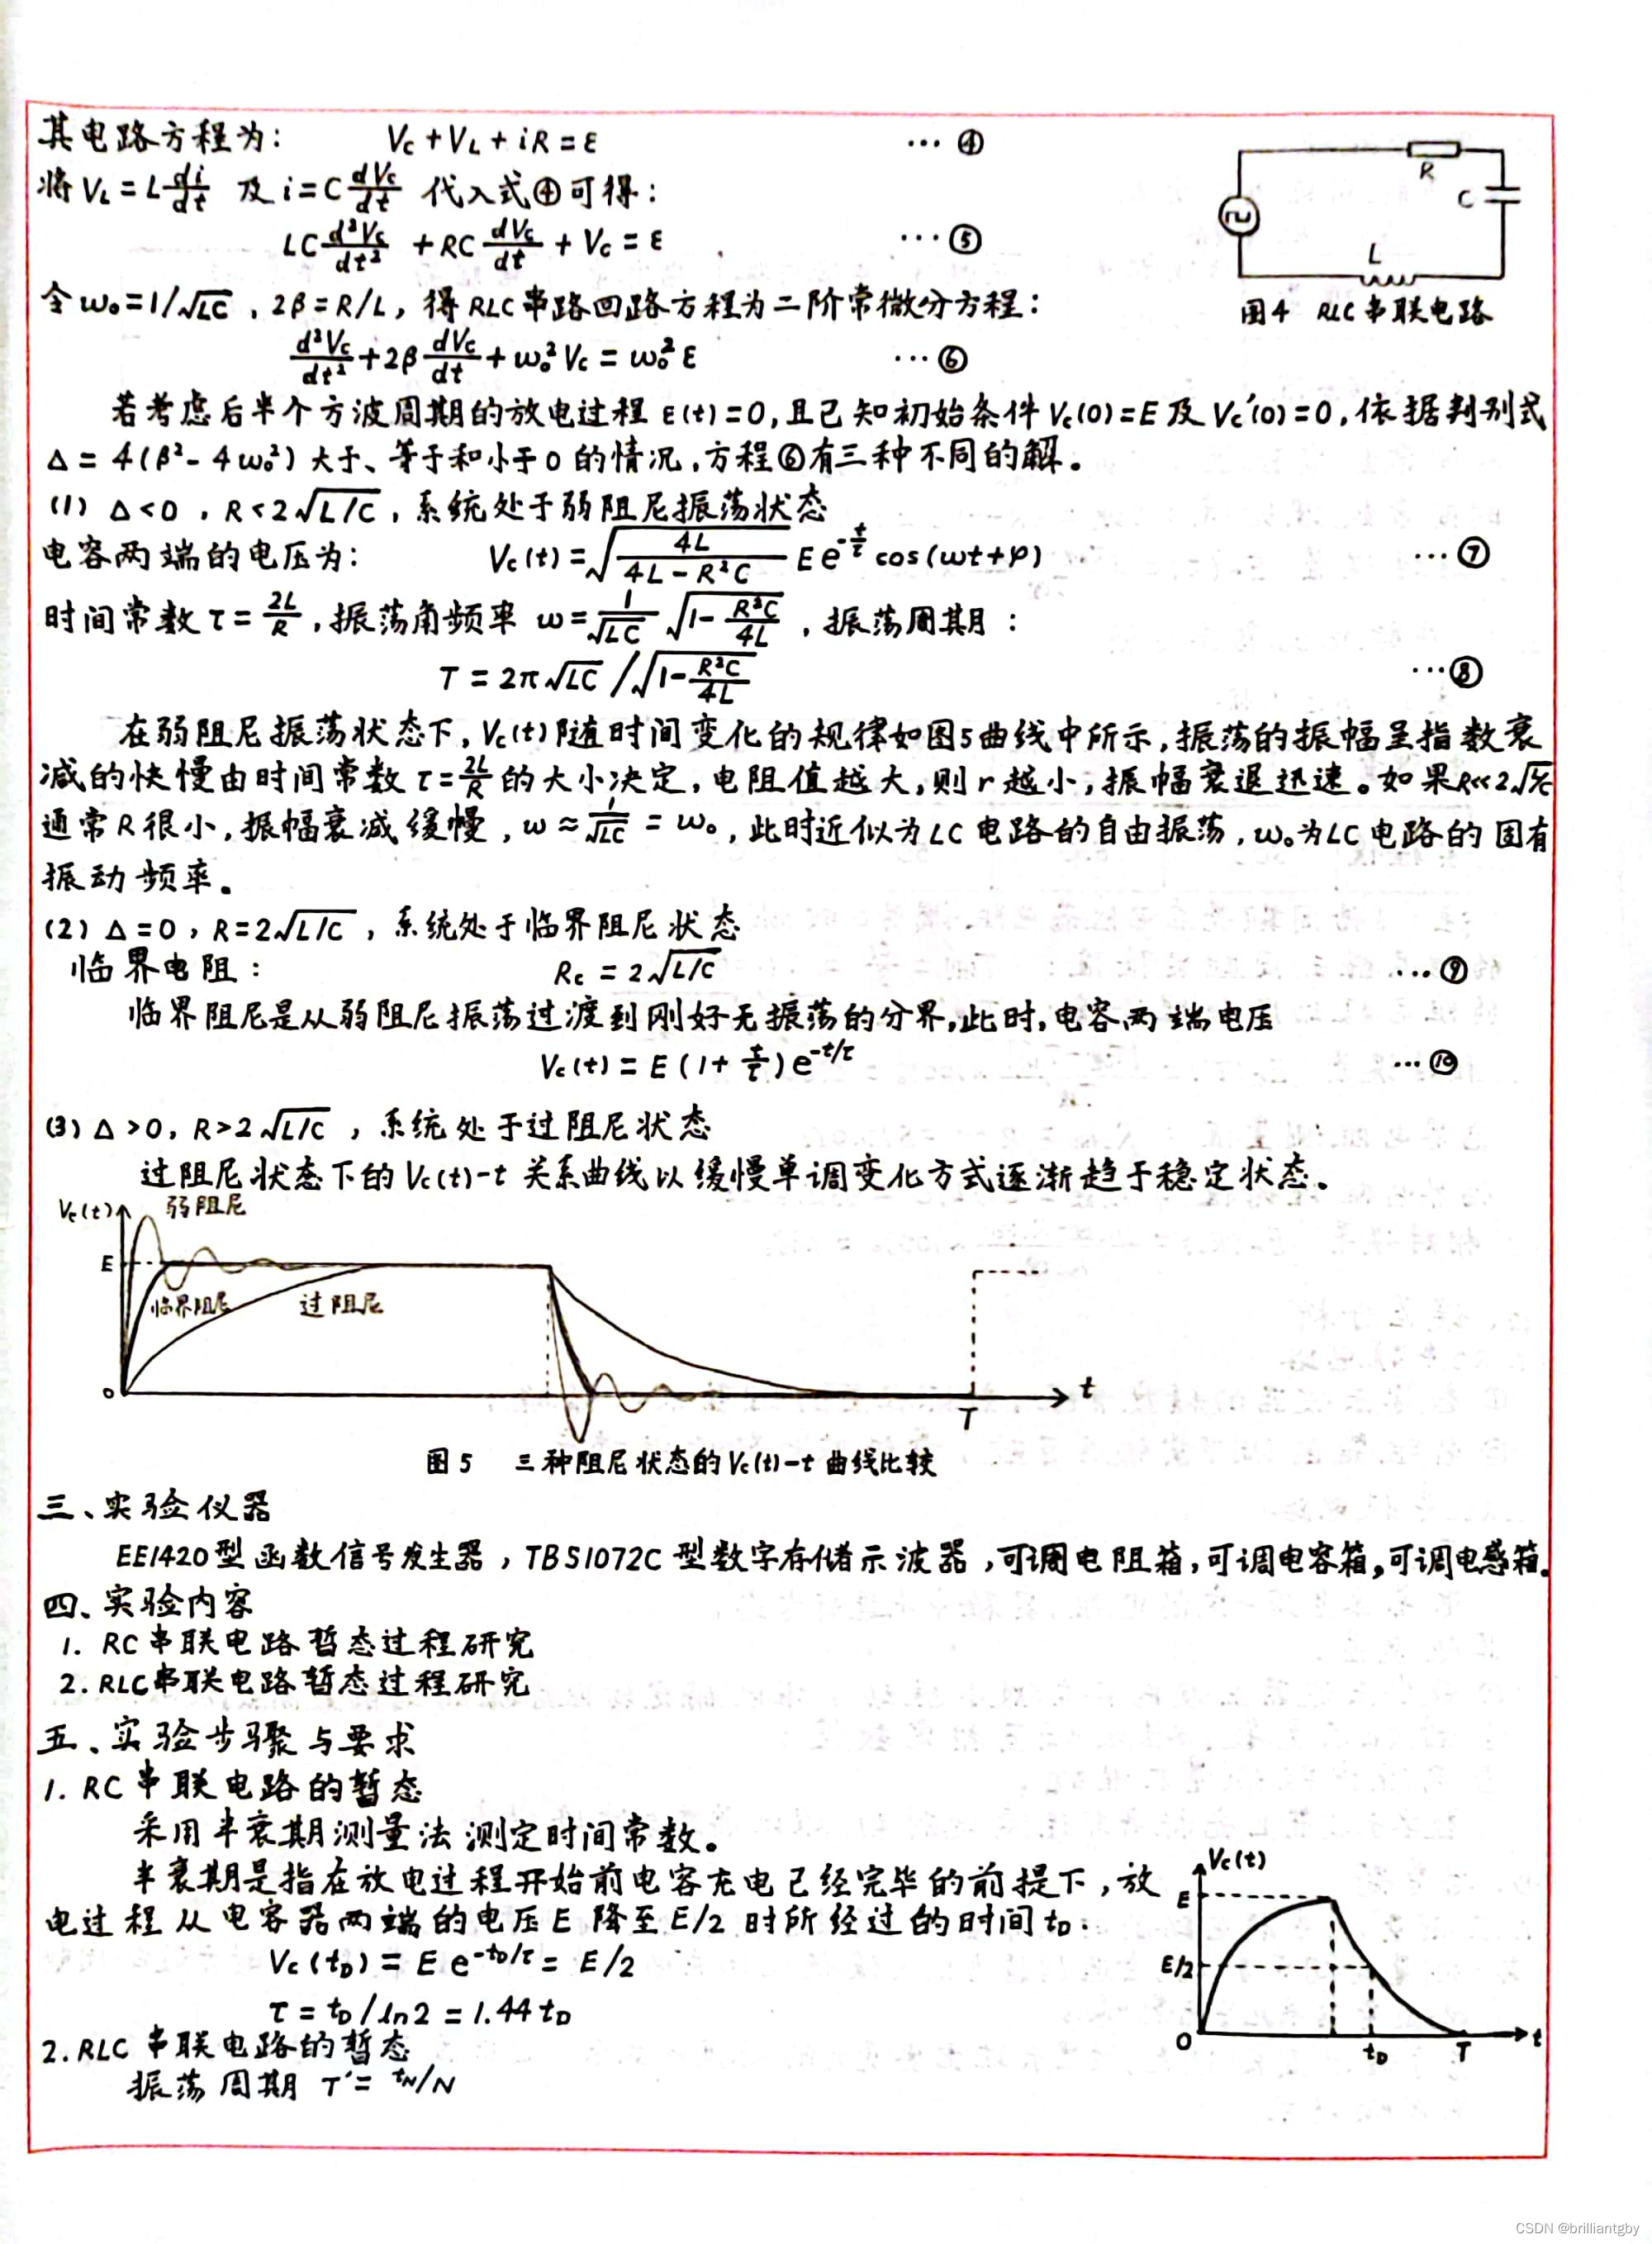 其电路方程为: Vc+VL+iR=ε …④
将VL=L di/dt 及i=C dVc/dt 代入式④可得:
LC d²Vc/dt² +RC dVc/dt + Vc = ε …⑤
令ω₀=1/√LC, 2β=R/L, 得RLC串路回路方程为二阶常微分方程:
d²Vc/dt²+2β dVc/dt+ω₀²Vc=ω₀²ε …⑥
R
C
L
图4 RLC串联电路
若考虑后半个方波周期的放电过程ε(t)=0,且已知初始条件Vc(0)=E及Vc'(0)=0,依据判别式
Δ=4(β²-4ω₀²)大于、等于和小于0的情况,方程⑥有三种不同的解。
(1) Δ<0, R<2√L/C, 系统处于弱阻尼振荡状态
电容两端的电压为: Vc(t)=√(4L/(4L-R²C)) E e^(-t/τ) cos(ωt+φ) …⑦
时间常数τ=2L/R, 振荡角频率 ω=1/√LC √(1-R²C/4L), 振荡周期:
T=2π√LC/√(1-R²C/4L) …⑧
在弱阻尼振荡状态下,Vc(t)随时间变化的规律如图5曲线中所示,振荡的振幅呈指数衰
减的快慢由时间常数τ=2L/R的大小决定,电阻值越大,则r越小,振幅衰退迅速。如果R<<2√L/C
通常R很小,振幅衰减缓慢,ω≈1/√LC=ω₀,此时近似为LC电路的自由振荡,ω₀为LC电路的固有
振动频率。
(2) Δ=0, R=2√L/C, 系统处于临界阻尼状态
临界电阻: Rc=2√L/C …⑨
临界阻尼是从弱阻尼振荡过渡到刚好无振荡的分界,此时,电容两端电压
Vc(t)=E(1+t/τ)e^(-t/τ) …⑩
(3) Δ>0, R>2√L/C, 系统处于过阻尼状态
过阻尼状态下的Vc(t)-t关系曲线以缓慢单调变化方式逐渐趋于稳定状态。
Vc(t) 弱阻尼
E
临界阻尼 过阻尼
0 t
T
图5 三种阻尼状态的Vc(t)-t曲线比较
三、实验仪器
EE1420型函数信号发生器,TBS1072C型数字存储示波器,可调电阻箱,可调电容箱,可调电感箱。
四、实验内容
1. RC串联电路暂态过程研究
2. RLC串联电路暂态过程研究
五、实验步骤与要求
1. RC串联电路的暂态
采用半衰期测量法测定时间常数。
半衰期是指在放电过程开始前电容充电已经完毕的前提下,放
电过程从电容器两端的电压E降至E/2时所经过的时间tD:
Vc(tD)=E e^(-tD/τ)=E/2
τ=tD/ln2=1.44tD
2. RLC串联电路的暂态
振荡周期 T'=tN/N
Vc(t)
E
E/2
0 tD T t
CSDN @brilliantgby